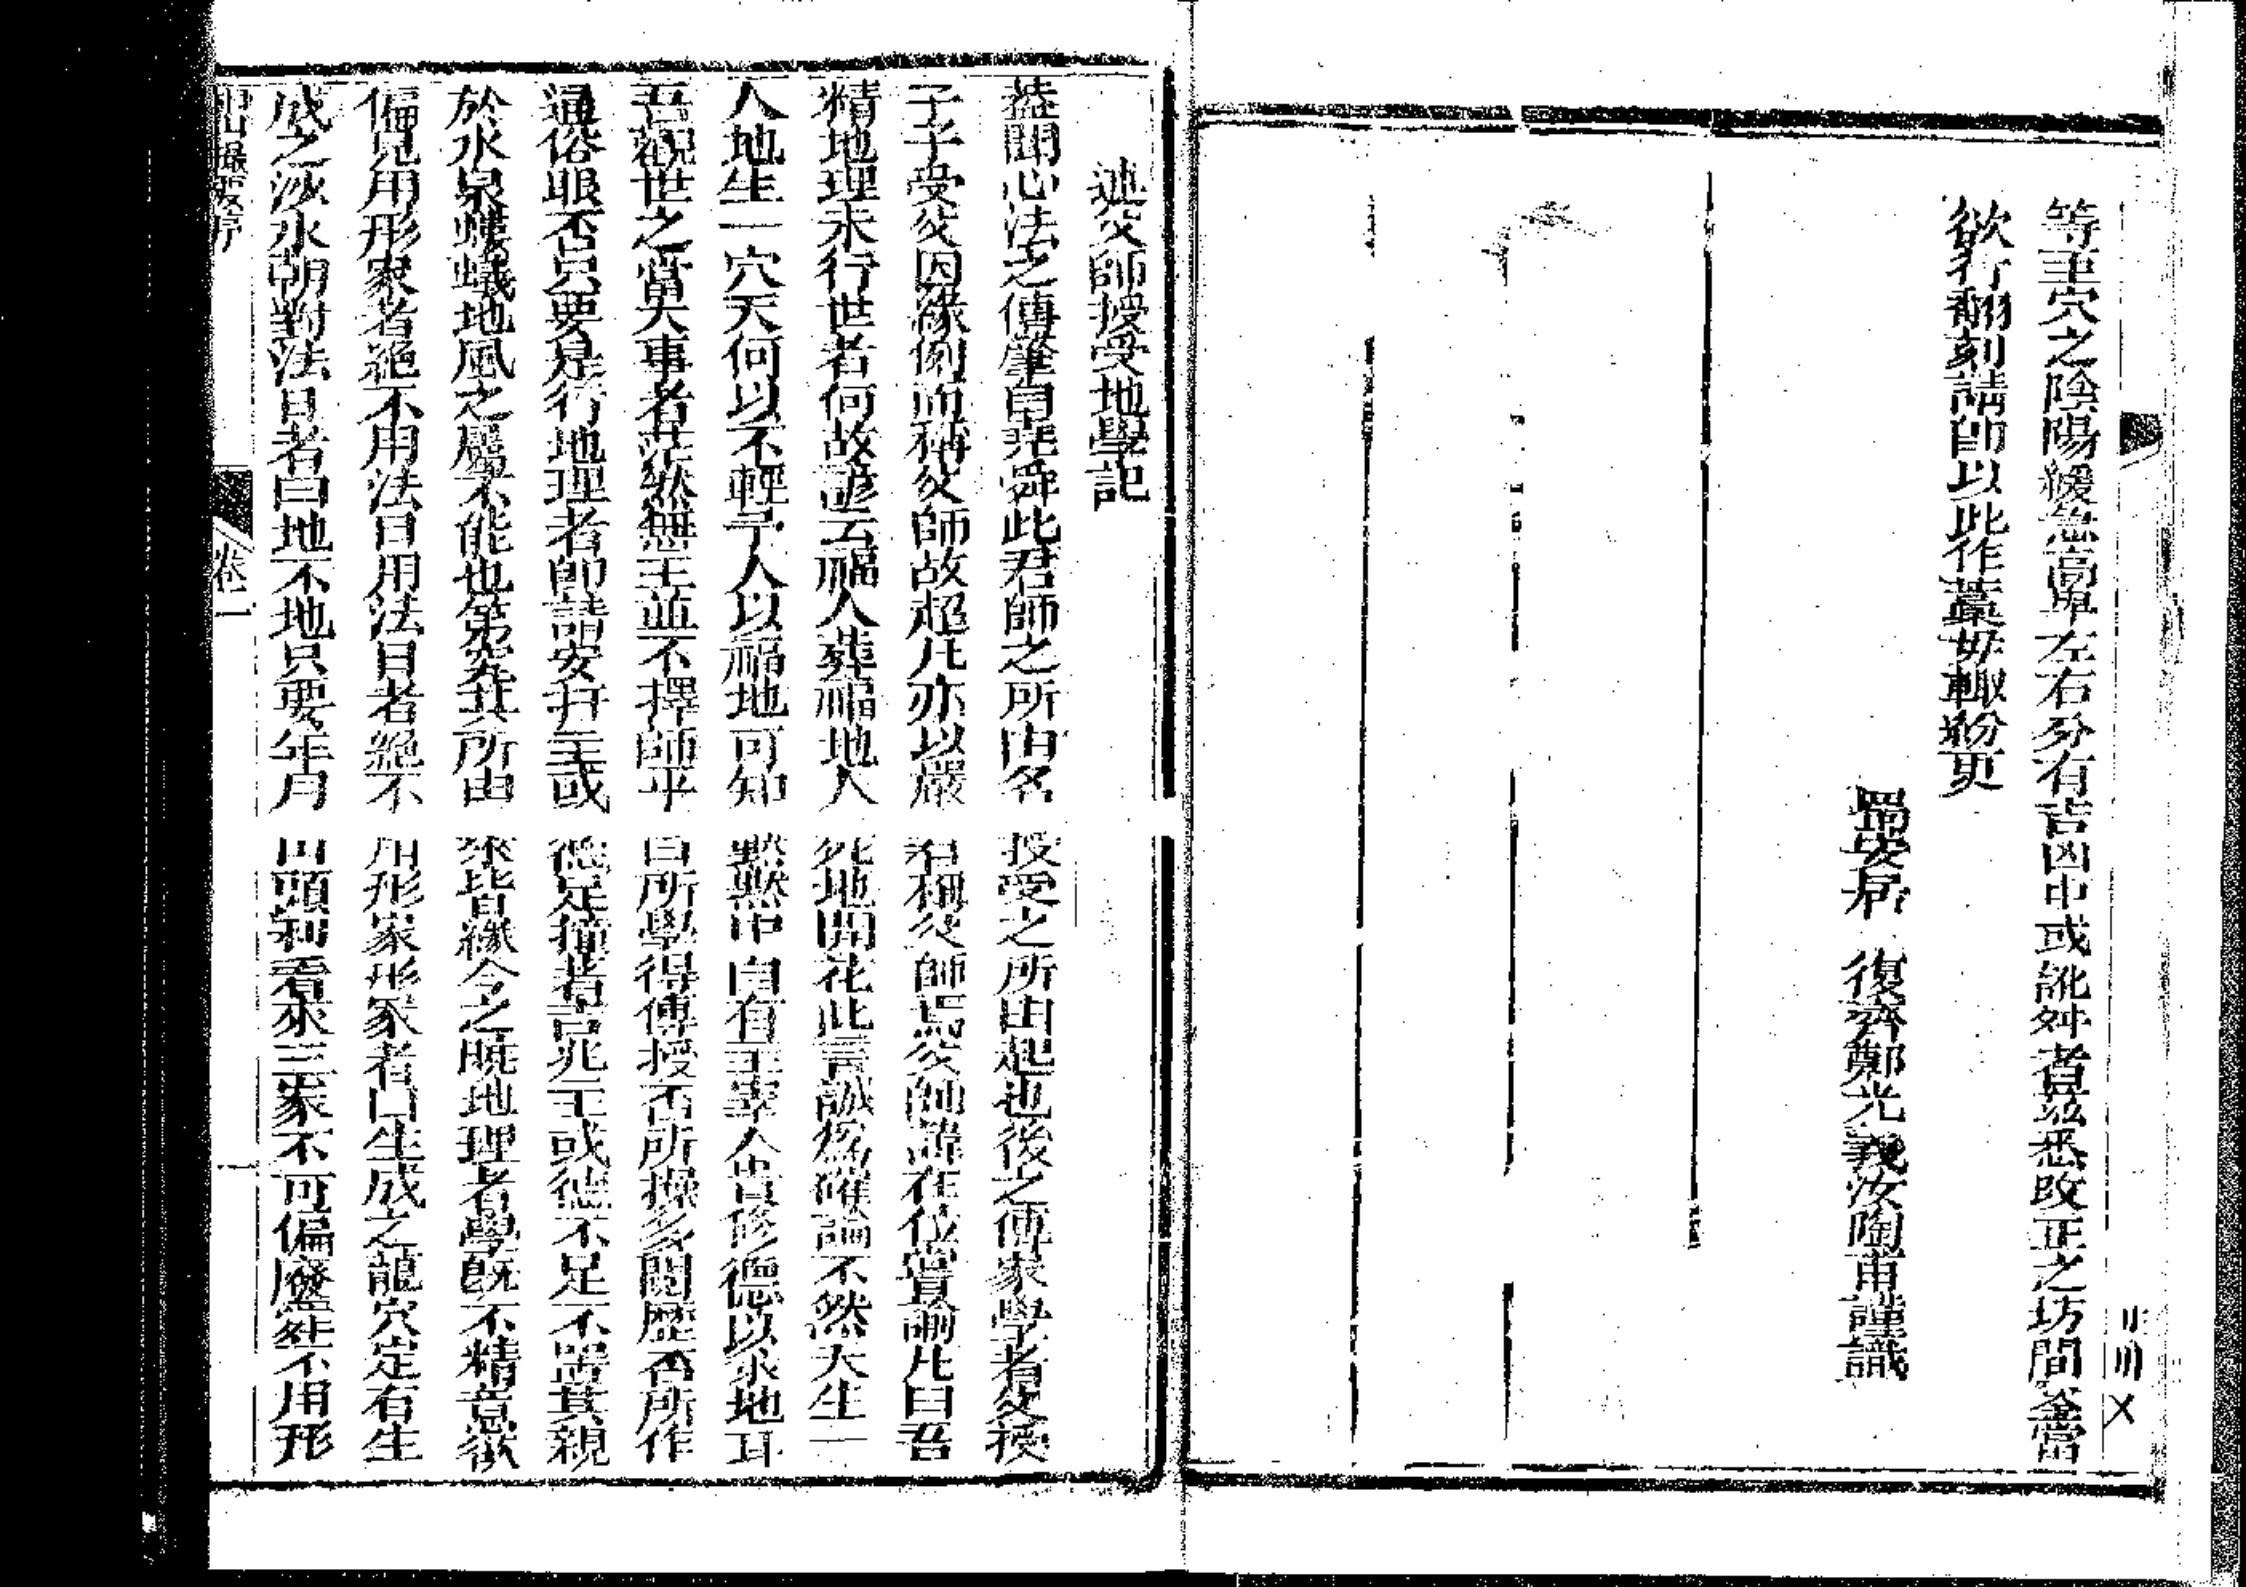 等主穴之陰陽緩急高卑左右分有吉凶中或訛舛者茲悉改正之坊間爻當
欲行翻刻請即以此作藁毋輙紛更
歸安居 復齊鄭光義汝陶甫謹識
述父師授受地學記
葢聞心法之傳肇自堯舜此君師之所由名授受之所由起也後之傳家學者父授
子子受父因緣例而稱父師故超凡亦以嚴君稱父師焉父師諱在位嘗論凡曰吾
精地理未行世者何故諺云福人葬福地人死地開花此言誠爲確論不然天生一
人地生一穴天何以不輕予人以福地可知默默中自有主宰人貴修德以求地耳
吾觀世之當大事者茫然無主並不擇師乎曰所學得傳授否所操多閱歷否所作
通俗眼否只要是行地理者即請安扦至或德足撞着吉兆
於水泉螻蟻地風之屬不能也第究其所由來皆緣今之曉地理者學旣不精意欲
偏見用形家者絶不用法日用法日者絶不用形家形家者曰生成之龍穴定有生
成之沙水朝對法日者曰地不地只要年月山頭利看來三家不可偏廢葬不用形
卷二